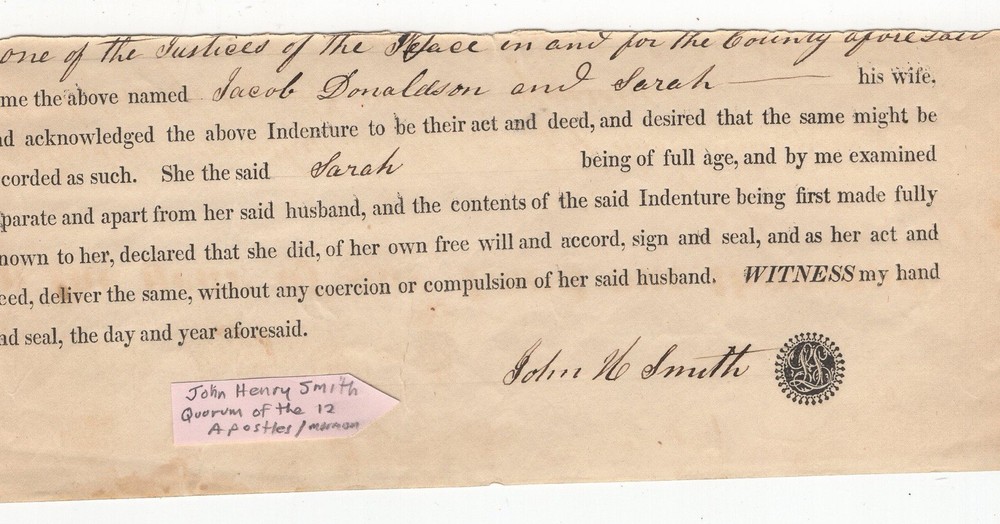 one of the Justices of the Peace in and for the County aforesaid
me the above named Jacob Donaldson and Sarah his wife,
nd acknowledged the above Indenture to be their act and deed, and desired that the same might be
corded as such. She the said Sarah being of full age, and by me examined
parate and apart from her said husband, and the contents of the said Indenture being first made fully
nown to her, declared that she did, of her own free will and accord, sign and seal, and as her act and
eed, deliver the same, without any coercion or compulsion of her said husband. WITNESS my hand
nd seal, the day and year aforesaid.
John H Smith LS
John Henry Smith
Quorum of the 12
Apostles/mormon